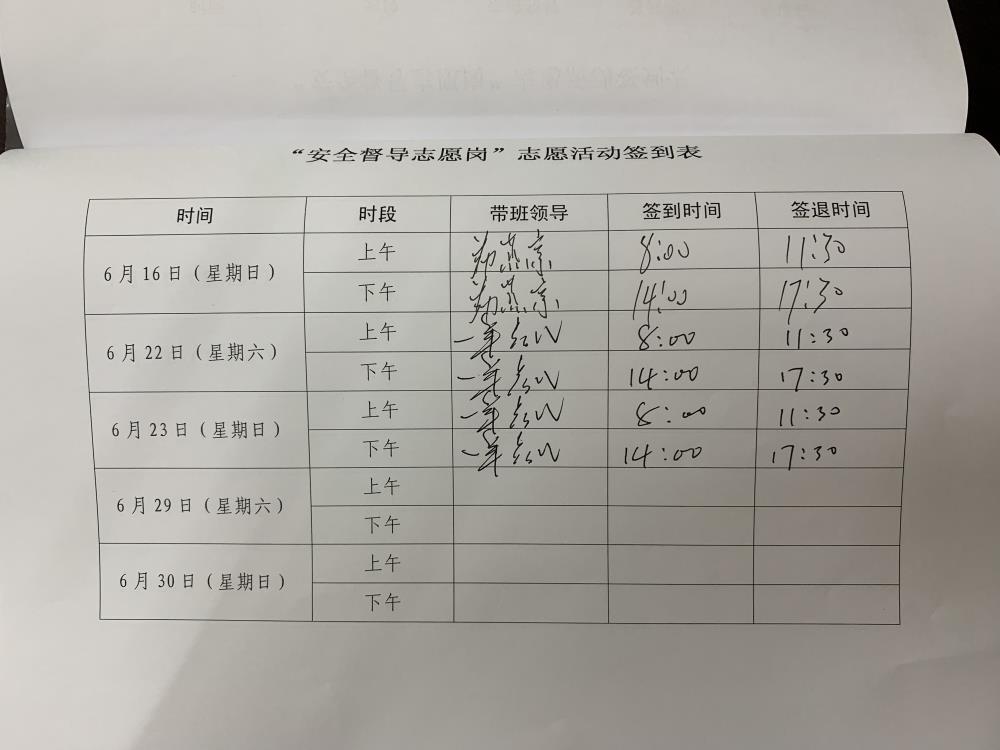 “安全督导志愿岗”志愿活动签到表
时间 时段 带班领导 签到时间 签退时间
6月16日（星期日） 上午 8:00 11:30
下午 14:00 17:30
6月22日（星期六） 上午 8:00 11:30
下午 14:00 17:30
6月23日（星期日） 上午 8:00 11:30
下午 14:00 17:30
6月29日（星期六） 上午
下午
6月30日（星期日） 上午
下午